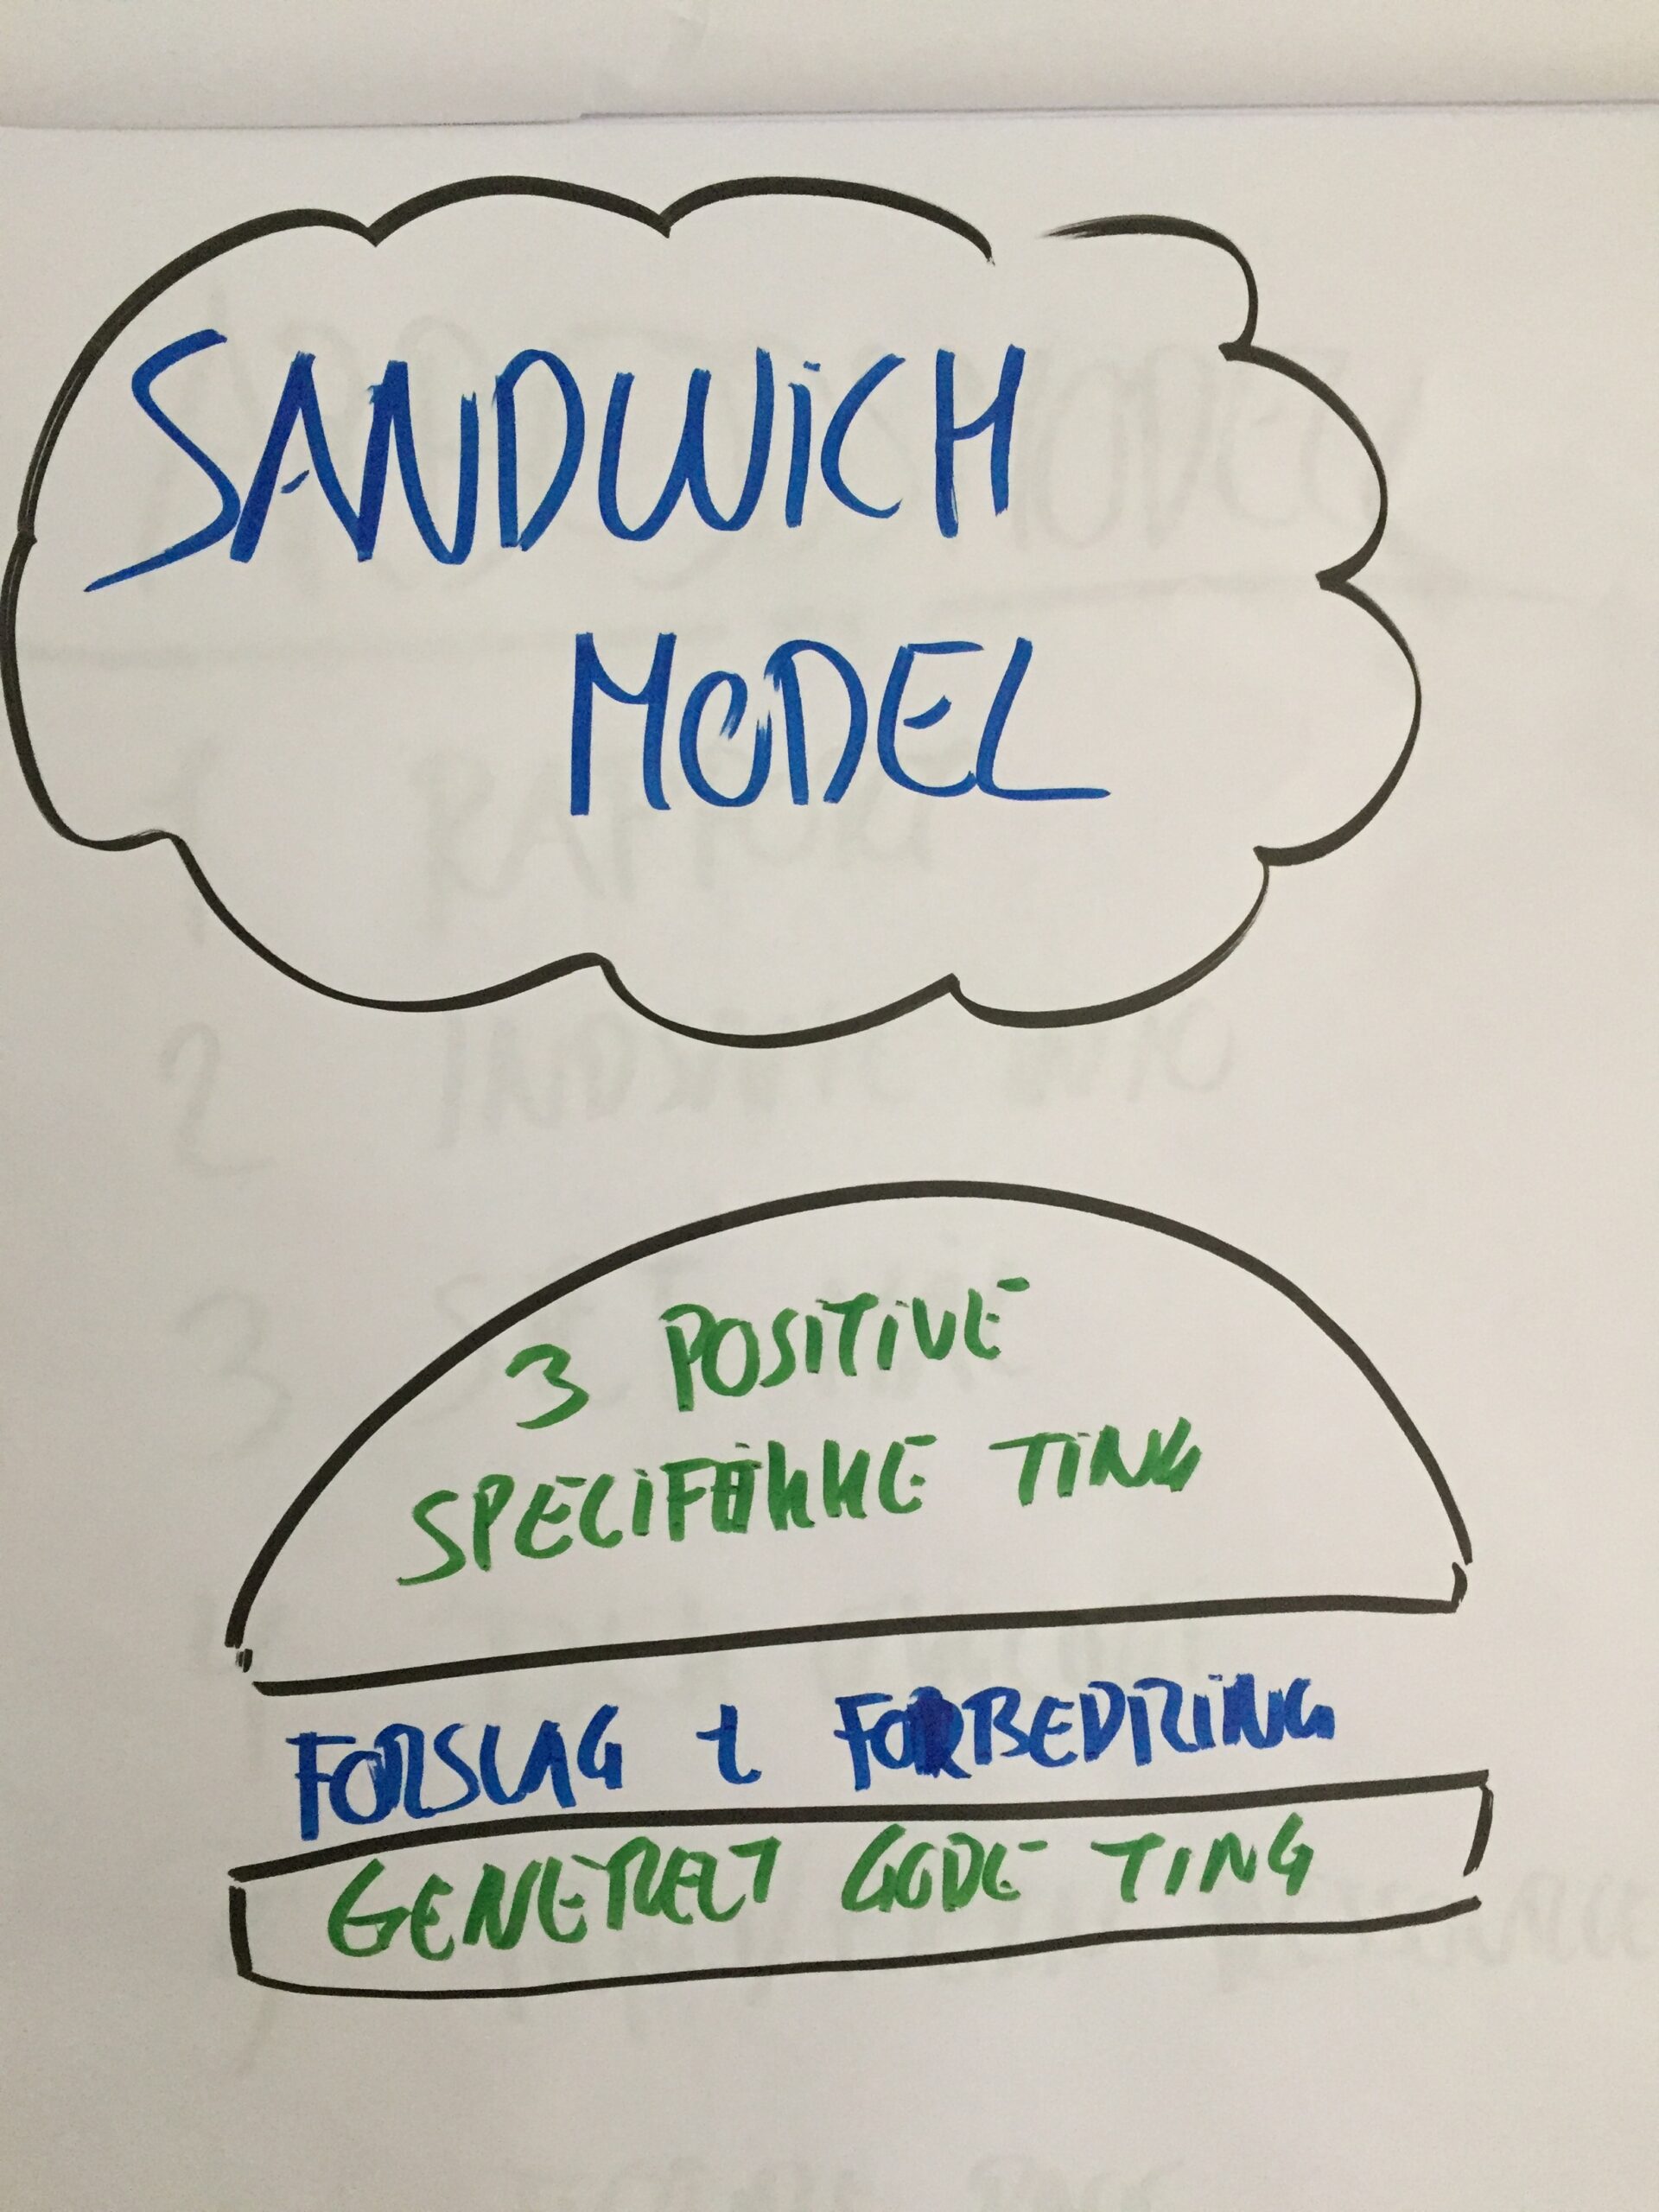 SANDWiCH
MODEL
3 POSITIVE
SPECIFIKKE TING
FORSLAG t FORBEDRING
GENERELT GODE TING